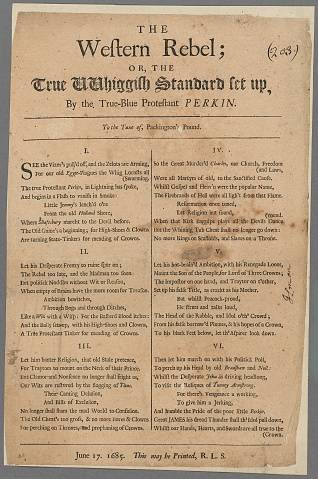 THE
Western Rebel;
OR, THE
True VVhiggish Standard set up,
By the True-Blue Protestant PERKIN.
(203)
To the Tune of, Packington's Pound.
I.
SEE the Vizor's pull'd off, and the Zelots are Arming,
For our old Egypt-Plagues the Whig Locusts all
(Swarming,
The true Protestant Perkin, in Lightning has spoke,
And begins in a Flash to vanish in Smoak:
Little Jemmy's
From the old Holland Shore,
Where Shaftsbury march't to the Devil before.
The Old Game's a beginning; for High-Shoes & Clowns
Are turning State-Tinkers for mending of Crowns.
II.
Let his Desperate Frenzy to ruine spur on;
The Rebel too late, and the Madman too soon:
But politick Noddles without Wit or Reason,
When empty of Brains have the more room for Treason.
Ambition bewitches,
Through Bogs and through Ditches,
Like a Will with a Wisp: For the Bastard blood itches:
And the Bully set up, with his High-shoes and Clowns,
A True Protestant Tinker for mending of Crowns.
III.
Let him banter Religion, that old Stale pretence,
For Traytors to mount on the Neck of their Prince.
But Clamor and Nonsence no longer shall fright us,
Our Wits are restored by the flogging of Titus.
Their Canting Delusion,
And Bills of Exclusion,
No longer shall sham the mad World to Confusion.
The Old Cheat's too gross, & no more Boors & Clowns
For perching on Thrones, and prophaning of Crowns.
IV.
So the Great Murder'd Charles, our Church, Freedom
(and Laws,
Were all Martyrs of old, to the Sanctified Cause.
Whilst Gospel and Heav'n were the popular Name,
The Firebrands of Hell were all light from that Flame.
Reformation once tuned,
Let Religion but sound,
When that Kirk Bagpipe plays all the Devils Dance
(round.
But the Whining Tub Cheat shall no longer go down:
No more Kings on Scaffolds, and Slaves on a Throne.
V.
Let his hot-brain'd Ambition, with his Renegade Loons,
Mount the Son of the People, for Lord of Three Crowns;
The Impostor on one hand, and Traytor on t'other,
Set up his false Title, as crackt as his Mother.
But whilst Peacock-proud,
He struts and talks loud,
The Head of the Rabble, and Idol o'th' Crowd;
From his false borrow'd Plumes, & his hopes of a Crown,
To his black Feet below, let th' Aspirer look down.
VI.
Then let him march on with his Politick Poll,
To perch up his Head by old Bradshaw and Noll:
Whilst the Desperate John is driving headlong,
To visit the Reliques of Tommy Armstrong,
For there's Vengeance a working,
To give him a Jerking,
And humble the Pride of the poor little Perkin.
Great JAMES his dread Thunder shall th' Idol pull down,
Whilst our Hands, Hearts, and Swords are all true to the
(Crown.
June 17. 1685. This may be Printed, R. L. S.